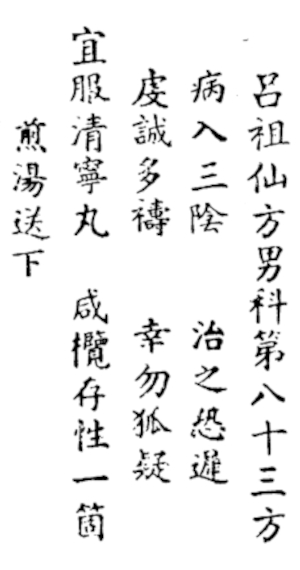 呂祖仙方男科第八十三方
病入三陰　治之恐遲
虔誠多禱　幸勿狐疑
宜服清寧丸　咸欖存性一箇
煎湯送下